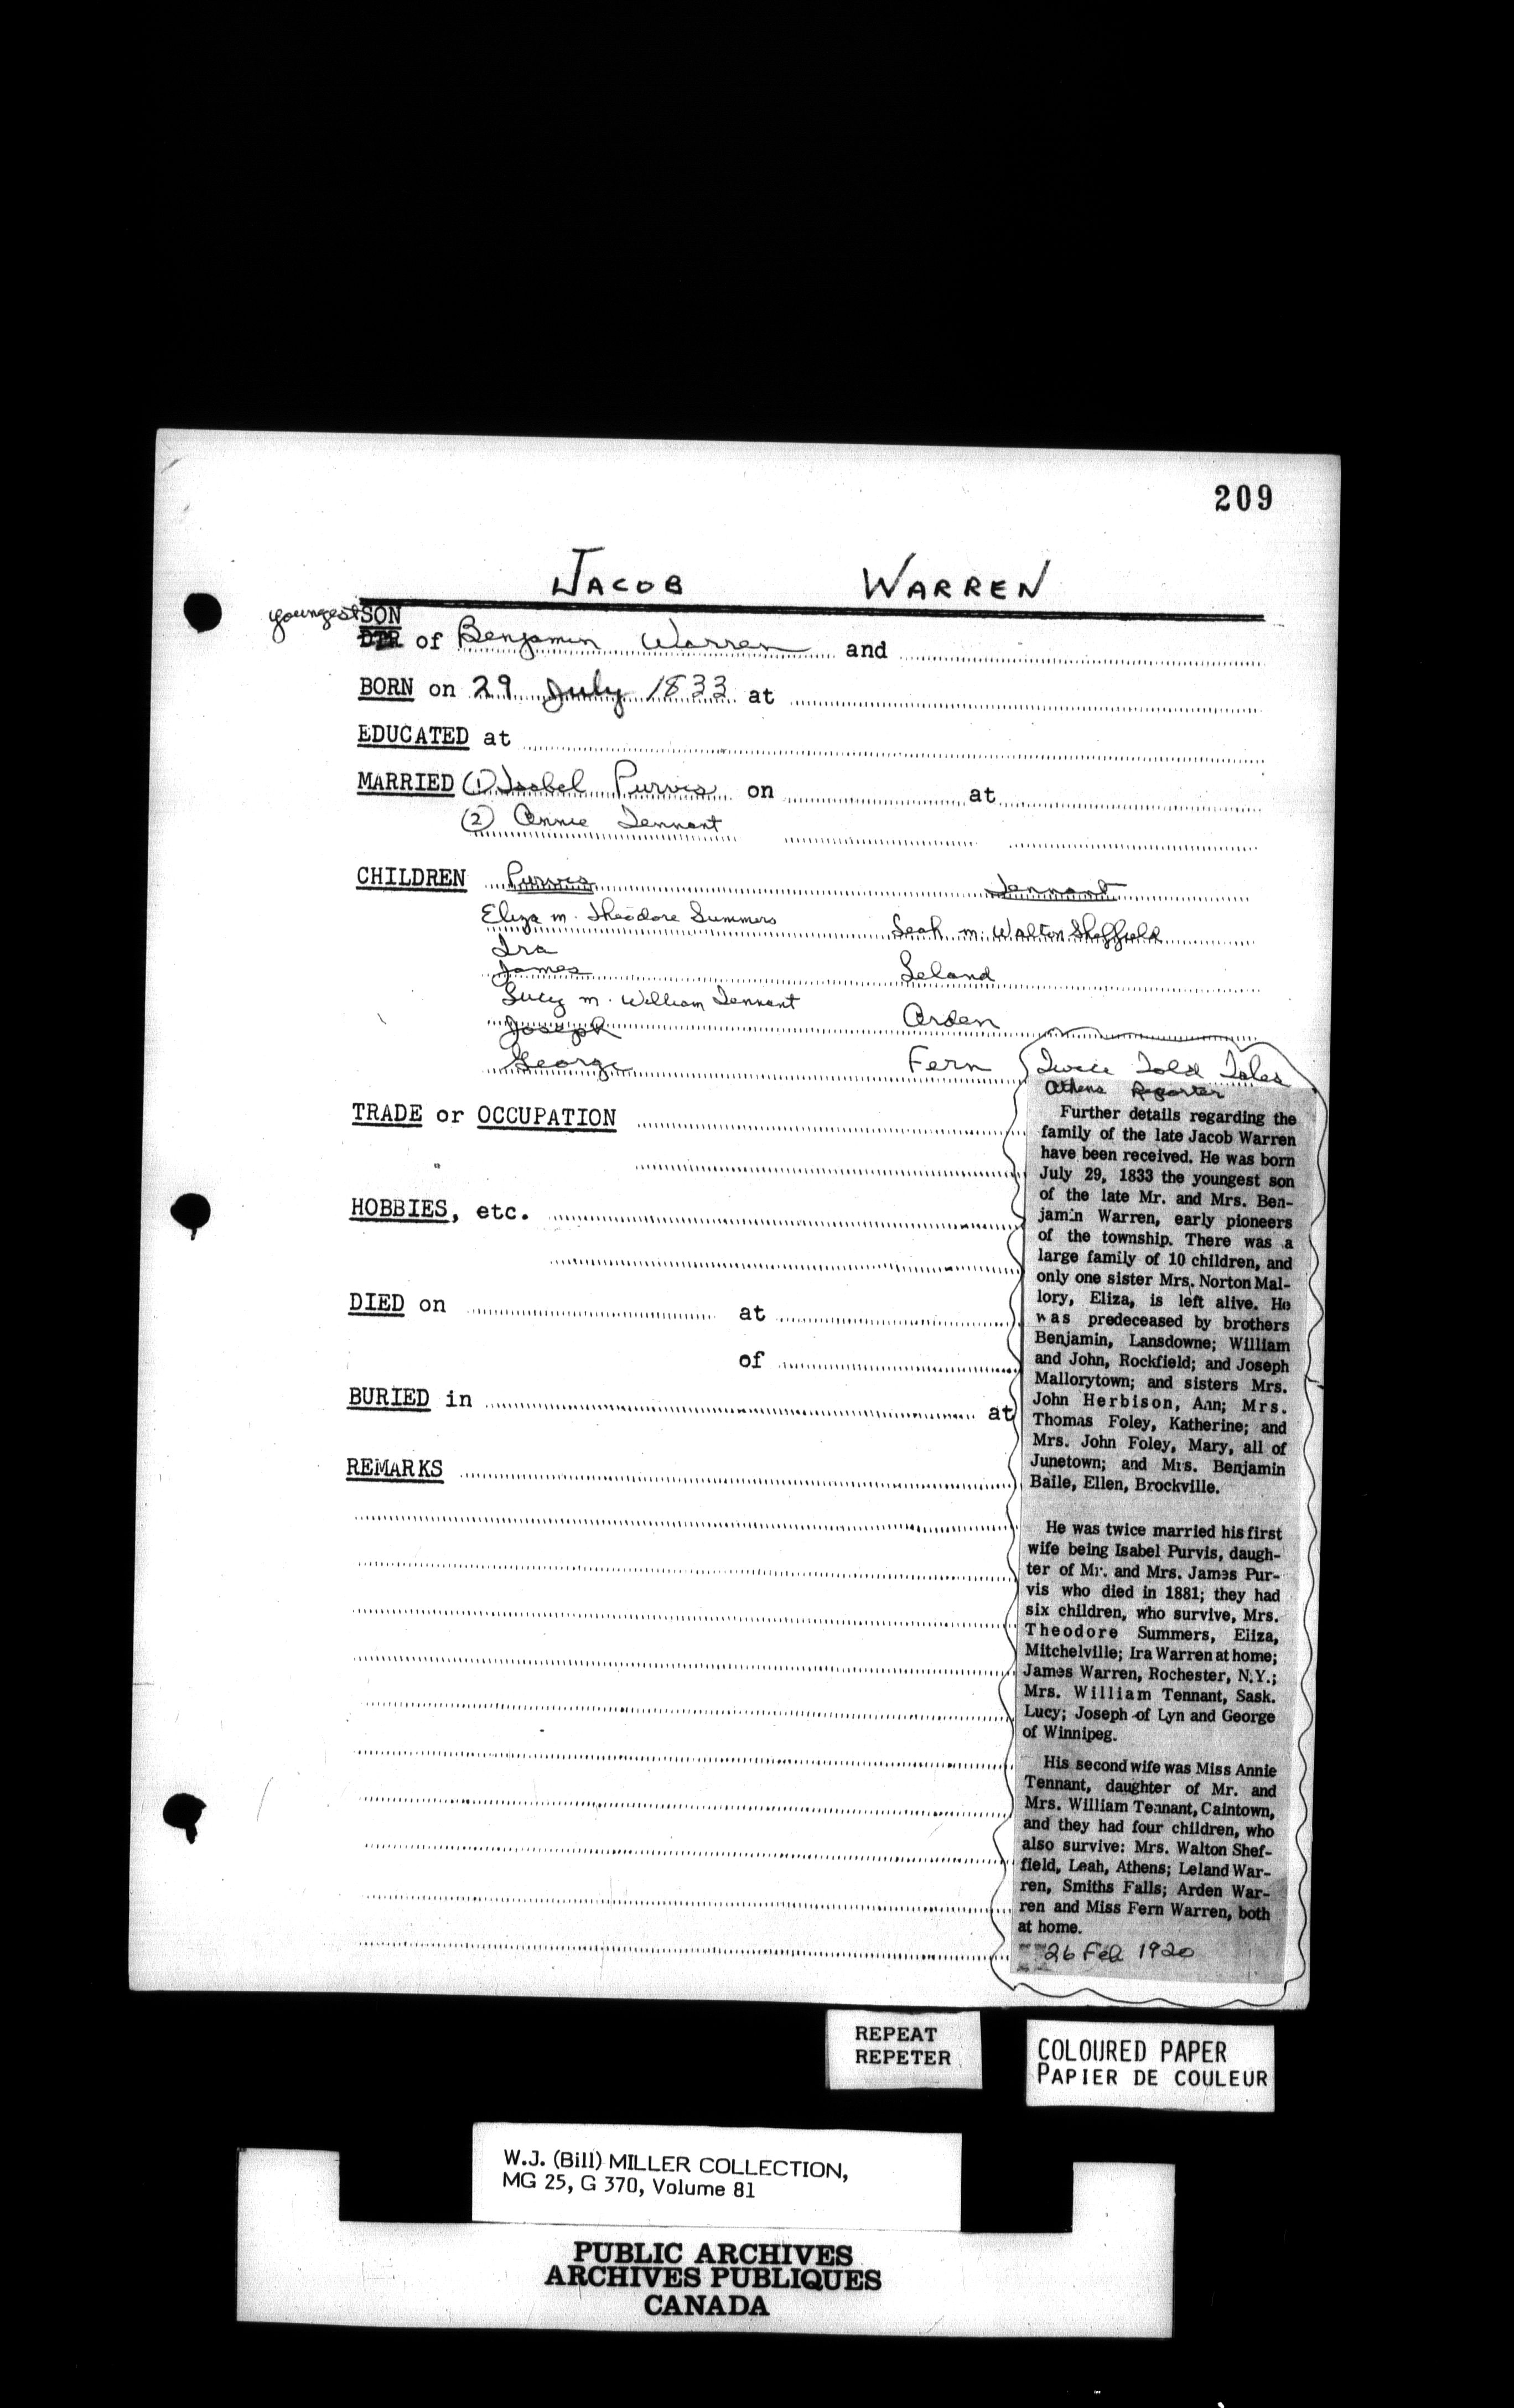 209
JACOB WARREN
youngest SON
DTR of Benjamin Warren and
BORN on 29 July 1833 at
EDUCATED at
MARRIED (1) Isabel Purvis on at
(2) Annie Tennant
CHILDREN Purvis Tennant
Eliza m. Theodore Summers Leah m. Walton Sheffield
Ira
James Leland
Lucy m. William Tennant
Joseph Arden
George Fern
TRADE or OCCUPATION
HOBBIES, etc.
DIED on at
of
BURIED in at
REMARKS
Twice Told Tales
Athens Reporter
Further details regarding the
family of the late Jacob Warren
have been received. He was born
July 29, 1833 the youngest son
of the late Mr. and Mrs. Ben-
jamin Warren, early pioneers
of the township. There was a
large family of 10 children, and
only one sister Mrs. Norton Mal-
lory, Eliza, is left alive. He
was predeceased by brothers
Benjamin, Lansdowne; William
and John, Rockfield; and Joseph
Mallorytown; and sisters Mrs.
John Herbison, Ann; Mrs.
Thomas Foley, Katherine; and
Mrs. John Foley, Mary, all of
Junetown; and Mrs. Benjamin
Baile, Ellen, Brockville.
He was twice married his first
wife being Isabel Purvis, daugh-
ter of Mr. and Mrs. James Pur-
vis who died in 1881; they had
six children, who survive, Mrs.
Theodore Summers, Eliza,
Mitchelville; Ira Warren at home;
James Warren, Rochester, N.Y.;
Mrs. William Tennant, Sask.
Lucy; Joseph of Lyn and George
of Winnipeg.
His second wife was Miss Annie
Tennant, daughter of Mr. and
Mrs. William Tennant, Caintown,
and they had four children, who
also survive: Mrs. Walton Shef-
field, Leah, Athens; Leland War-
ren, Smiths Falls; Arden War-
ren and Miss Fern Warren, both
at home.
26 Feb 1920
REPEAT
REPETER
COLOURED PAPER
PAPIER DE COULEUR
W.J. (Bill) MILLER COLLECTION,
MG 25, G 370, Volume 81
PUBLIC ARCHIVES
ARCHIVES PUBLIQUES
CANADA